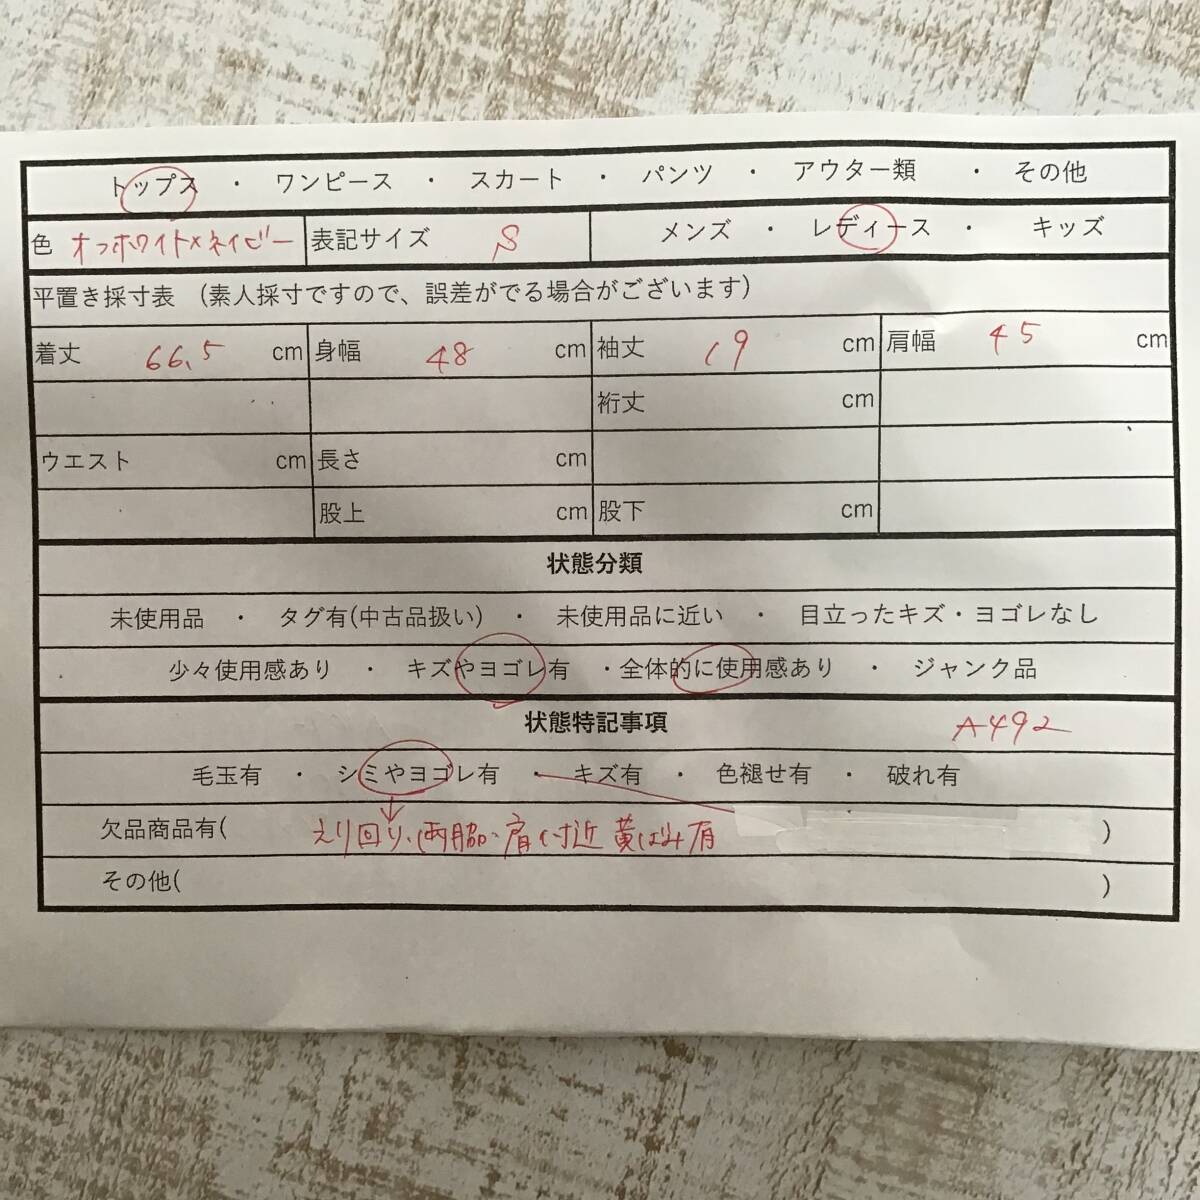 トップス ・ ワンピース ・ スカート ・ パンツ ・ アウター類 ・ その他
色 オフホワイト×ネイビー 表記サイズ S メンズ ・ レディース ・ キッズ
平置き採寸表 (素人採寸ですので、誤差がでる場合がございます)
着丈 66.5 cm 身幅 48 cm 袖丈 19 cm 肩幅 45 cm
裄丈 cm
ウエスト cm 長さ cm
股上 cm 股下 cm
状態分類
未使用品 ・ タグ有(中古品扱い) ・ 未使用品に近い ・ 目立ったキズ・ヨゴレなし
少々使用感あり ・ キズやヨゴレ有 ・全体的に使用感あり ・ ジャンク品
状態特記事項 A492
毛玉有 ・ シミやヨゴレ有 ・ キズ有 ・ 色褪せ有 ・ 破れ有
欠品商品有( えり回り、両脇、肩付近 黄ばみ有 )
その他( )